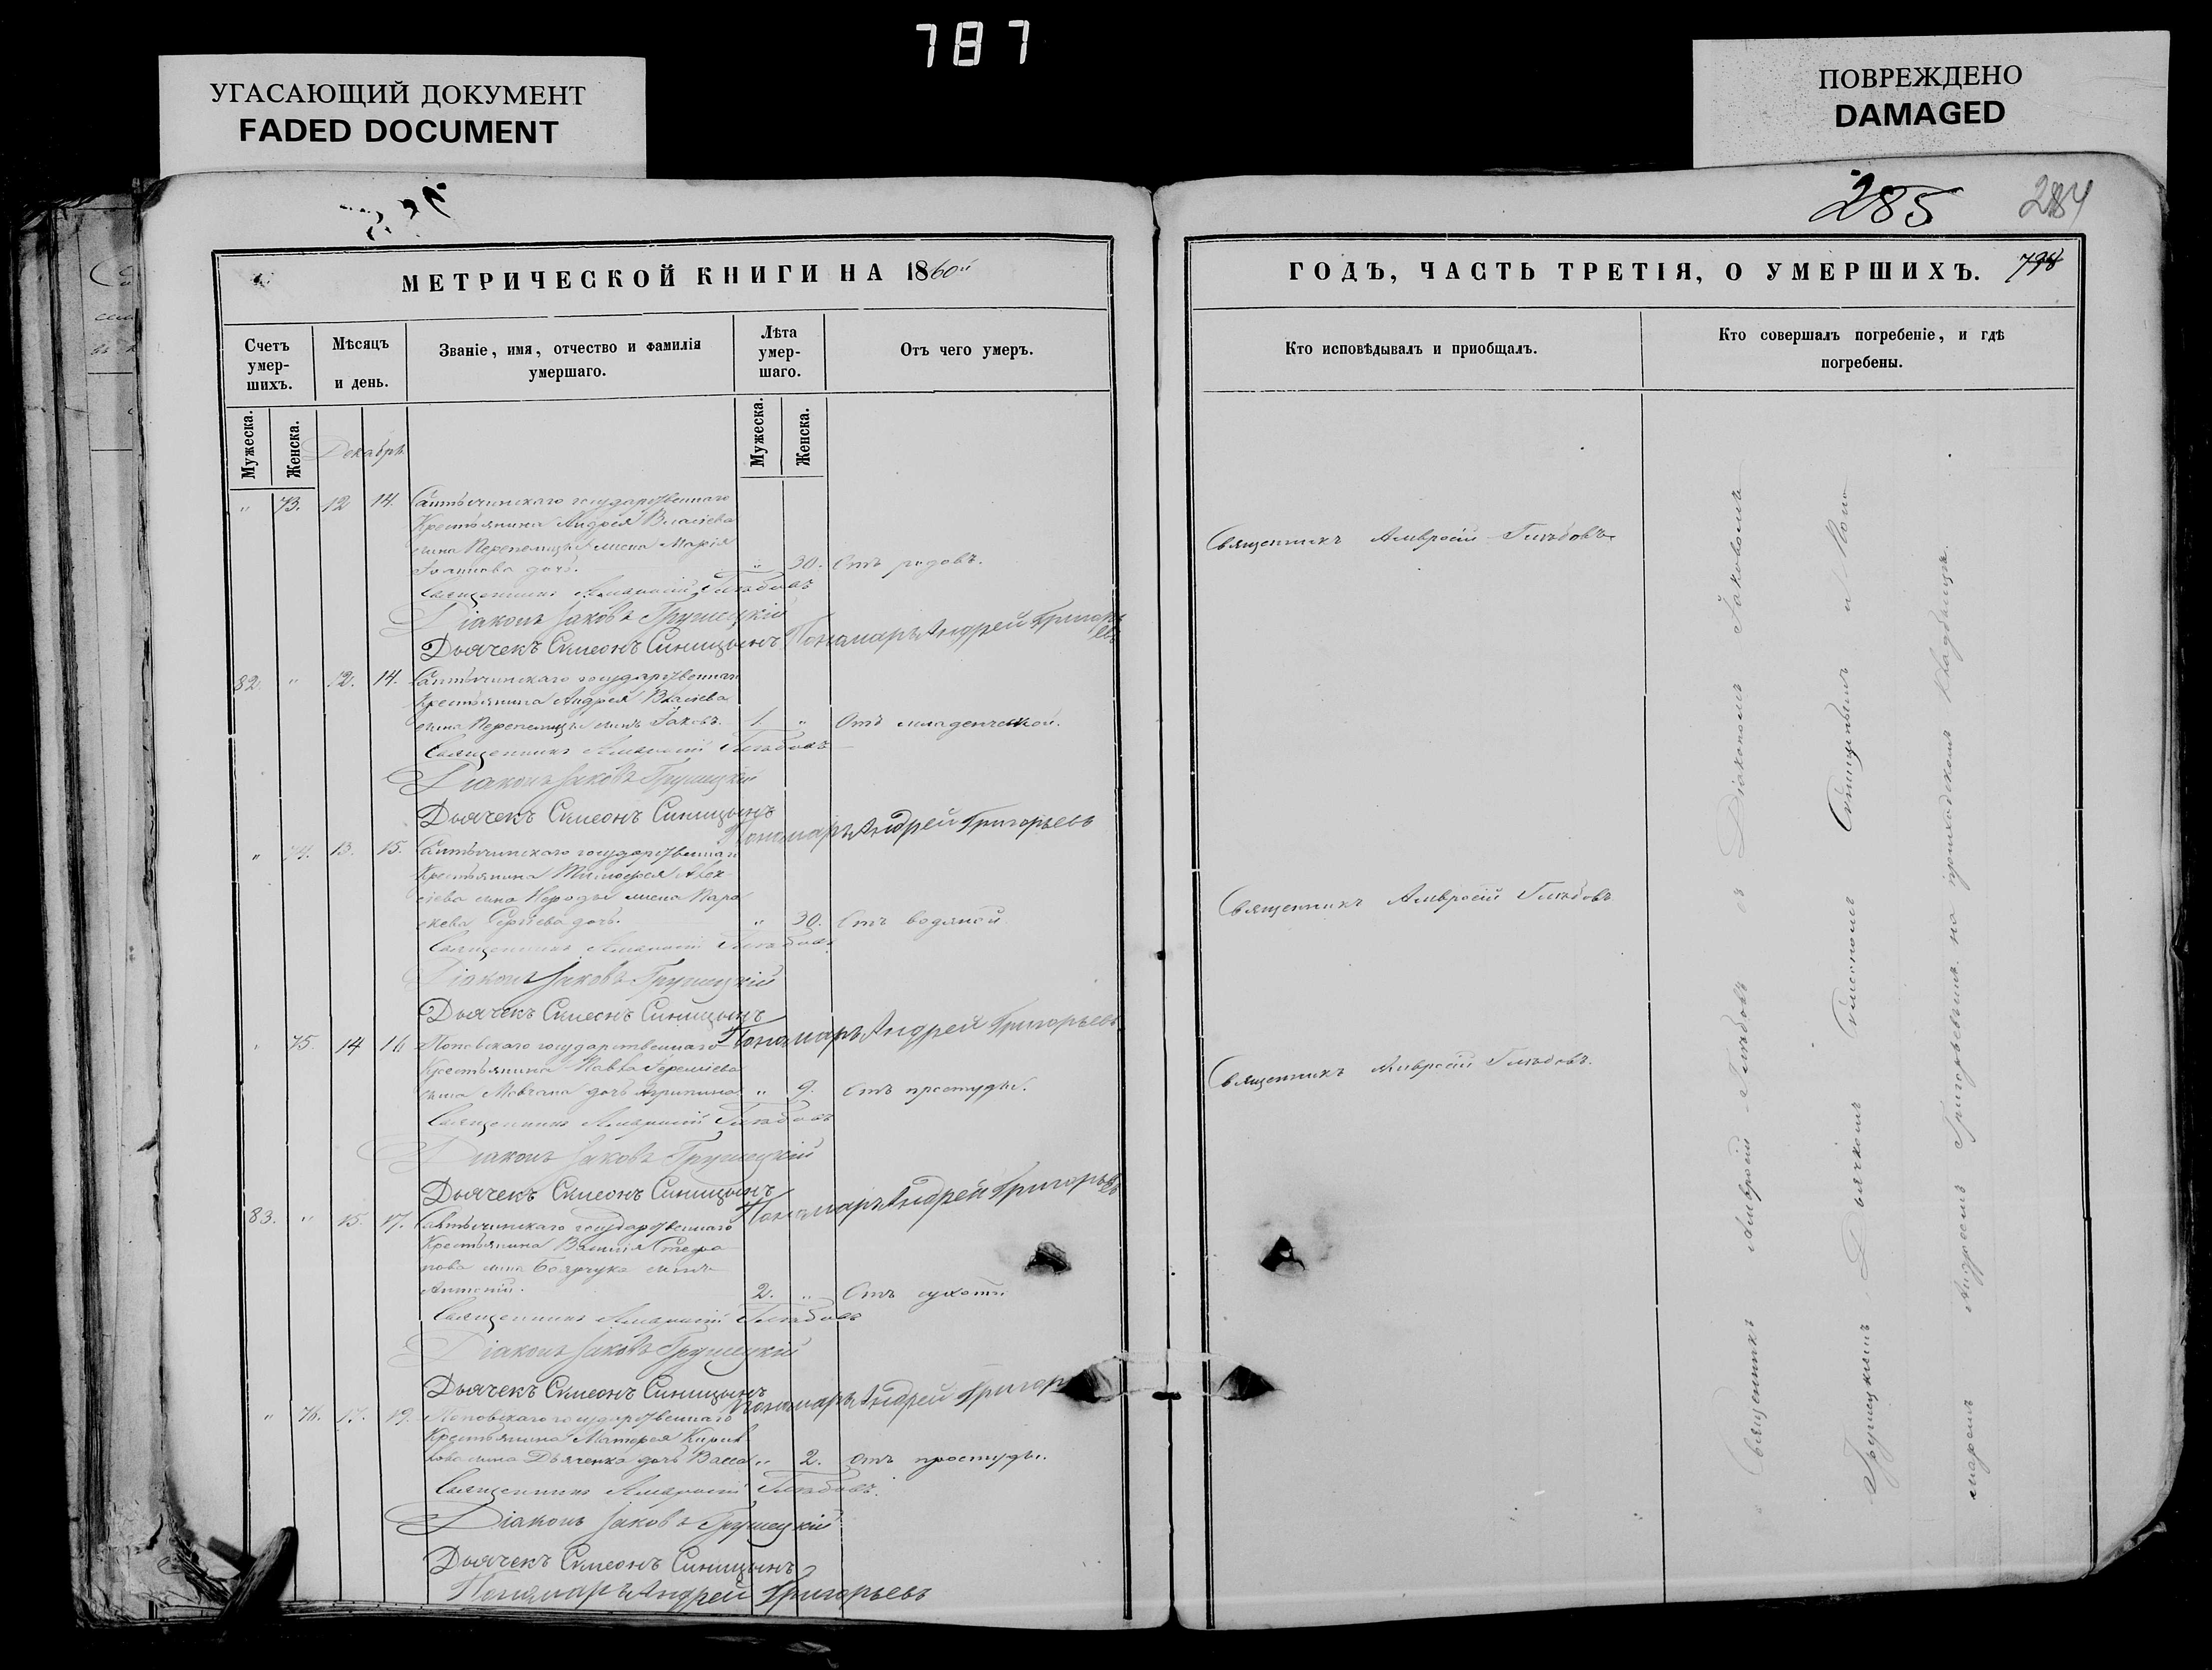 787
УГАСАЮЩИЙ ДОКУМЕНТ
FADED DOCUMENT
ПОВРЕЖДЕНО
DAMAGED
285
284
МЕТРИЧЕСКОЙ КНИГИ НА 1860й
Счетъ умер-шихъ.
Мѣсяцъ и день.
Званіе, имя, отчество и фамилія умершаго.
Лѣта умер-шаго.
Отъ чего умеръ.
Мужеска.
Женска.
Декабрь
Мужеска.
Женска.
" 73. 12 14. государственнаго
Крестьянина Андрея Власіева
сына жена Марія
дочь. " 30. Отъ родовъ.
Священникъ Амвросій Глѣбовъ
Діаконъ Іаковъ Грушецкій
Дьячекъ Симеонъ Синицынъ Пономарь Андрей Григорьевъ
82. " 12. 14. государственнаго
Крестьянина Андрея Власіева
сына сынъ Іаковъ. 1. " Отъ младенческой.
Священникъ Амвросій Глѣбовъ
Діаконъ Іаковъ Грушецкій
Дьячекъ Симеонъ Синицынъ
Пономарь Андрей Григорьевъ
" 74. 13. 15. государственнаго
Крестьянина Тимофея Алек-
сіева сына жена Пара
скева дочь. " 30. Отъ водяной
Священникъ Амвросій Глѣбовъ
Діаконъ Іаковъ Грушецкій
Дьячекъ Симеонъ Синицынъ
Пономарь Андрей Григорьевъ
" 75. 14 16 Поповскаго государственнаго
Крестьянина Павла Іереміева
сына Мовчана дочь Агрипина " 9. Отъ простуды.
Священникъ Амвросій Глѣбовъ
Діаконъ Іаковъ Грушецкій
Дьячекъ Симеонъ Синицынъ
Пономарь Андрей Григорьевъ
83. " 15. 17. государственнаго
Крестьянина Василія Стефа
нова сына Боярчука сынъ
Антоній. 2. " Отъ сухоты
Священникъ Амвросій Глѣбовъ
Діаконъ Іаковъ Грушецкій
Дьячекъ Симеонъ Синицынъ
Пономарь Андрей Григор
" 76. 17. 19. Поповскаго государственнаго
Крестьянина Матфея Кирил
лова сына Дьяченка дочь Васса " 2. Отъ простуды.
Священникъ Амвросій Глѣбовъ.
Діаконъ Іаковъ Грушецкій
Дьячекъ Симеонъ Синицынъ
Пономарь Андрей Григорьевъ
ГОДЪ, ЧАСТЬ ТРЕТІЯ, О УМЕРШИХЪ.
Кто исповѣдывалъ и приобщалъ.
Кто совершалъ погребеніе, и гдѣ погребены.
Священникъ Амвросій Глѣбовъ
Священникъ Амвросій Глѣбовъ
Священникъ Амвросій Глѣбовъ.
Священникъ Амвросій Глѣбовъ съ Діакономъ Іаковомъ
Грушецкимъ, Дьячкомъ Симеономъ Синицынымъ и Поно
маремъ Андреемъ Григорьевымъ на приходскомъ кладбищѣ.